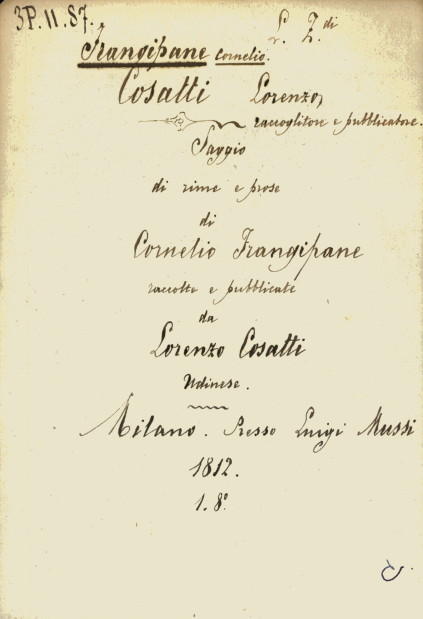 3P. 11. 87.
L. Z.di
Frangipane Cornelio.
Cosatti Lorenzo,
raccoglitore e pubblicatore.
Saggio
di rime e prose
di
Cornelio Frangipane
raccolte e pubblicate
da
Lorenzo Cosatti
Udinese.
Milano. Presso Luigi Mussi
1812.
1. 8°